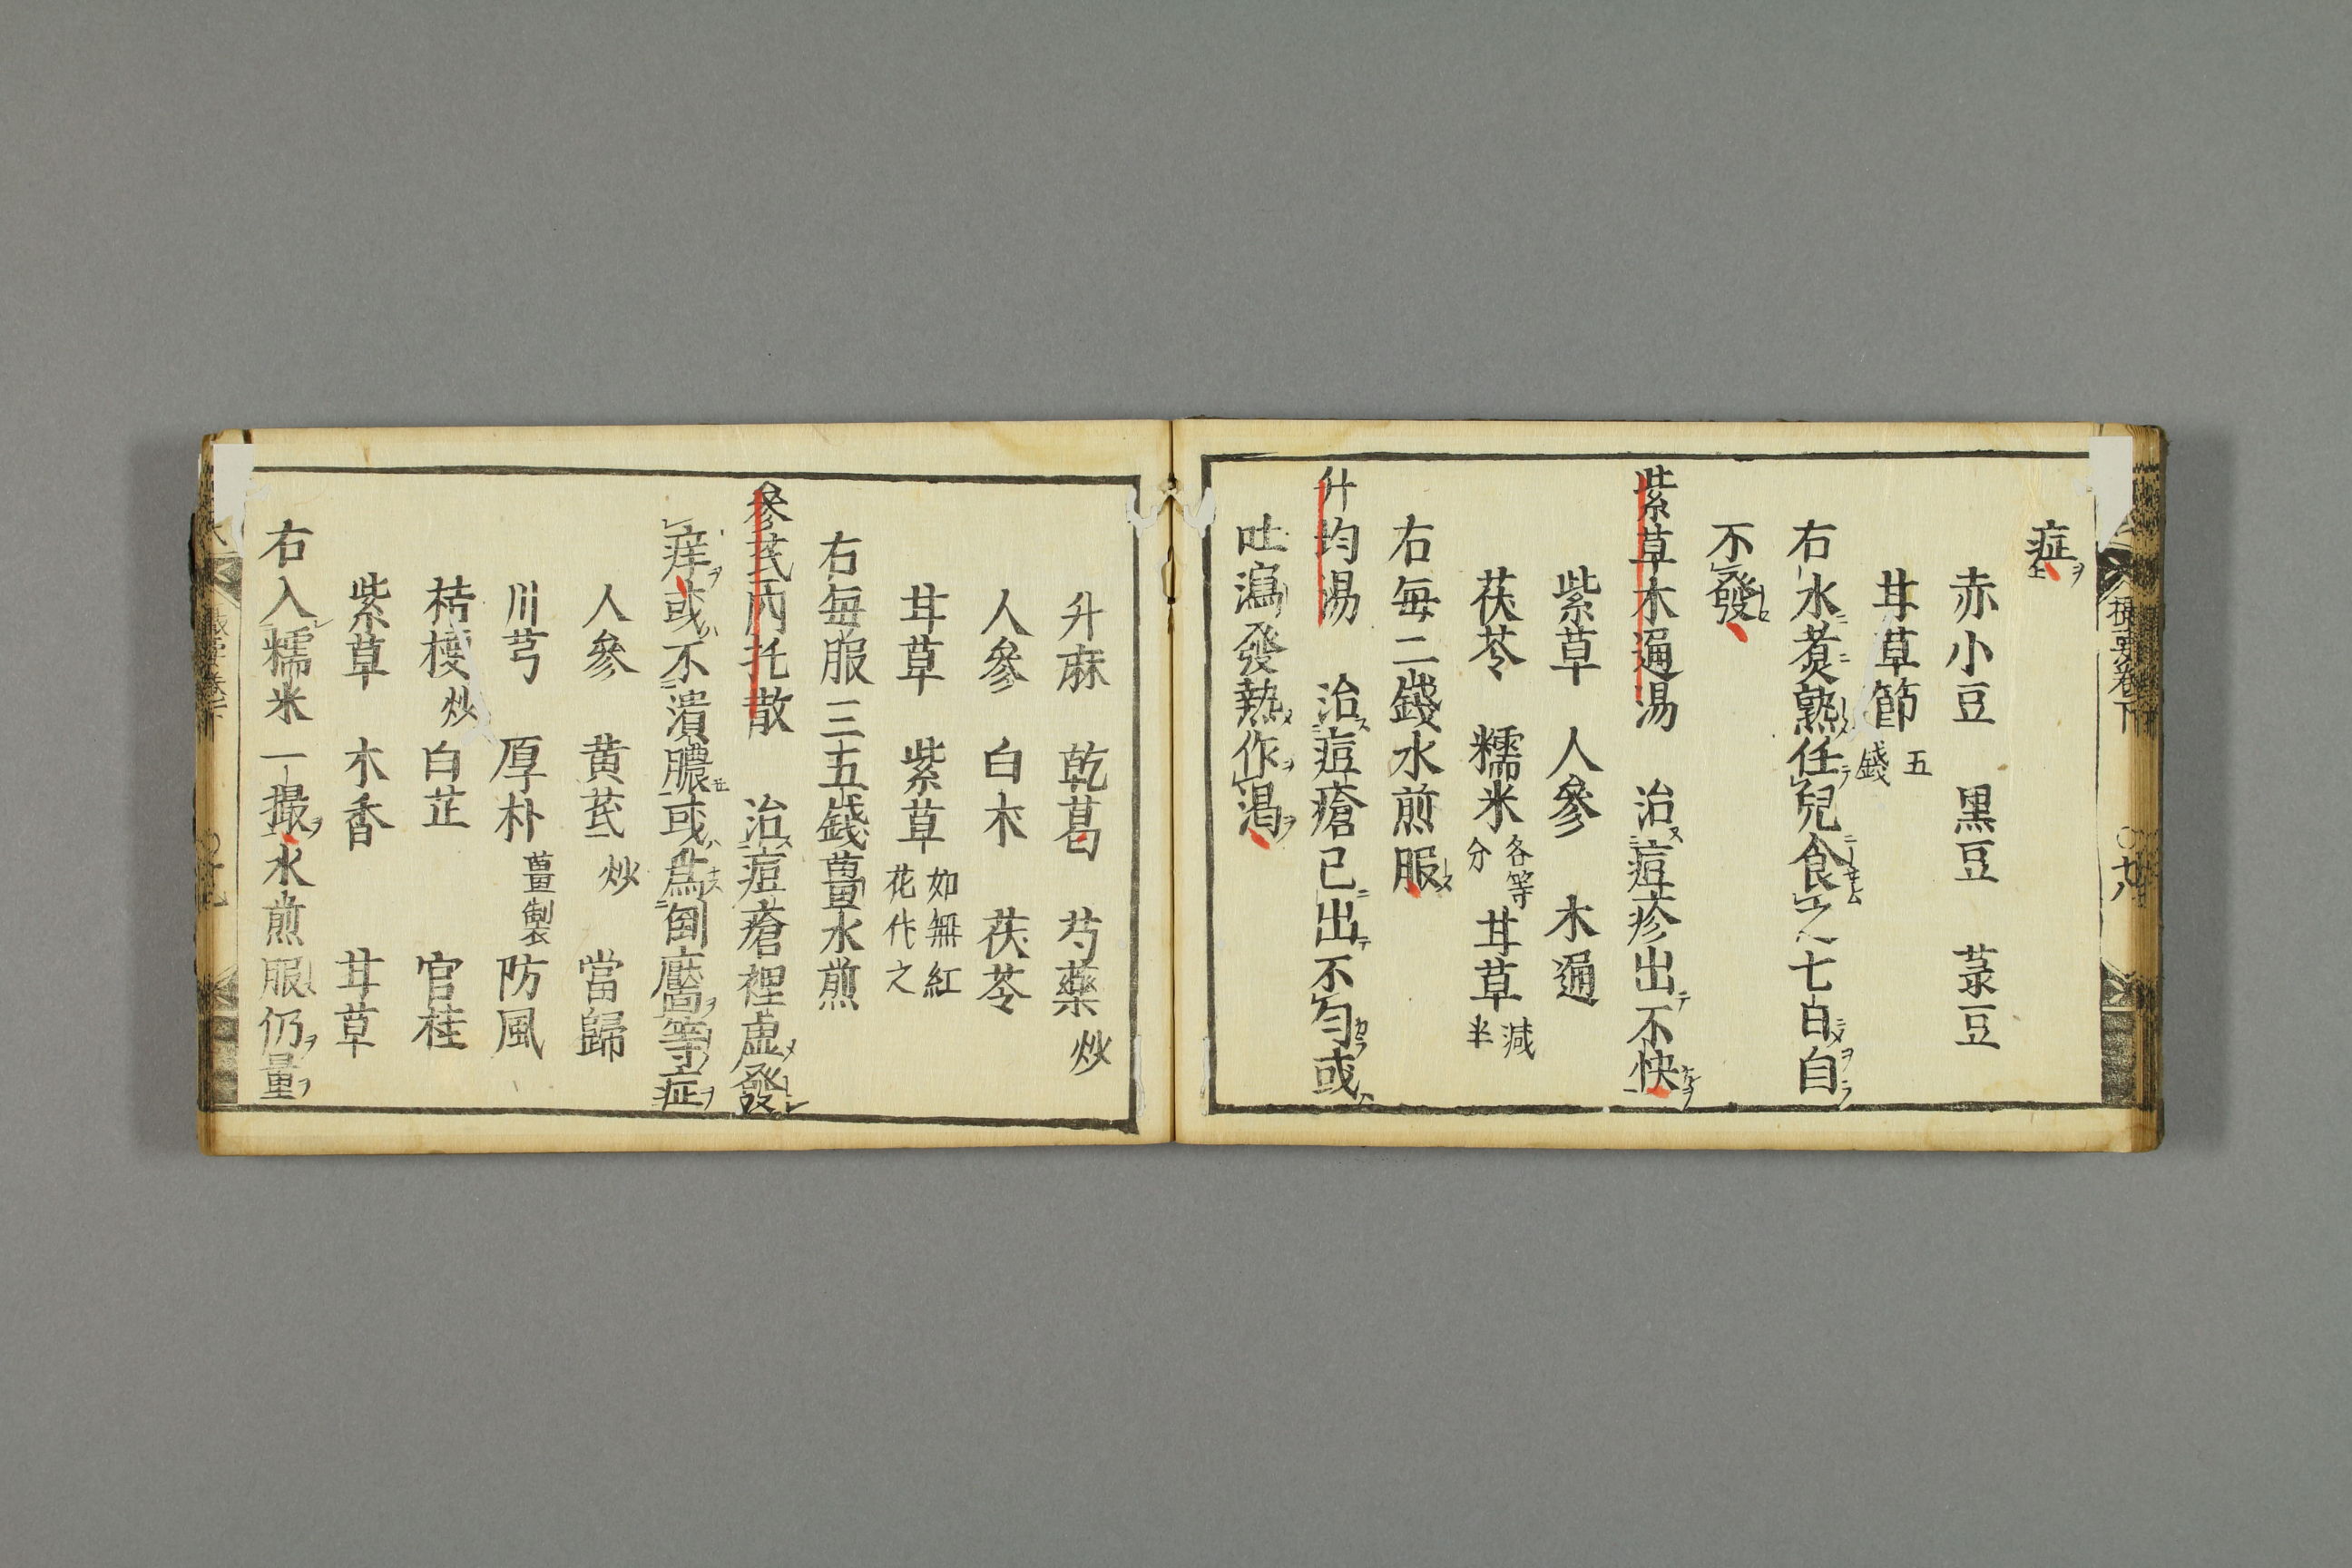 症
赤小豆　黒豆　菉豆
甘草節五錢
右水煮熟任兒食之七日自
不發
紫草木通湯　治痘疹出不快
紫草　人參　木通
茯苓　糯米各等分　甘草減半
右毎二錢水煎服
升均湯　治痘瘡已出不勻或
吐瀉發熱作渇
升麻　乾葛　芍藥炒
人參　白朮　茯苓
甘草　紫草如無紅花代之
右毎服三五錢薑水煎
參芪内托散　治痘瘡裡虚發
痒或不潰膿或為倒靨等症
人參　黄芪炒　當歸
川芎　厚朴薑製　防風
桔梗炒　白芷　官桂
紫草　木香　甘草
右入糯米一撮水煎服仍量